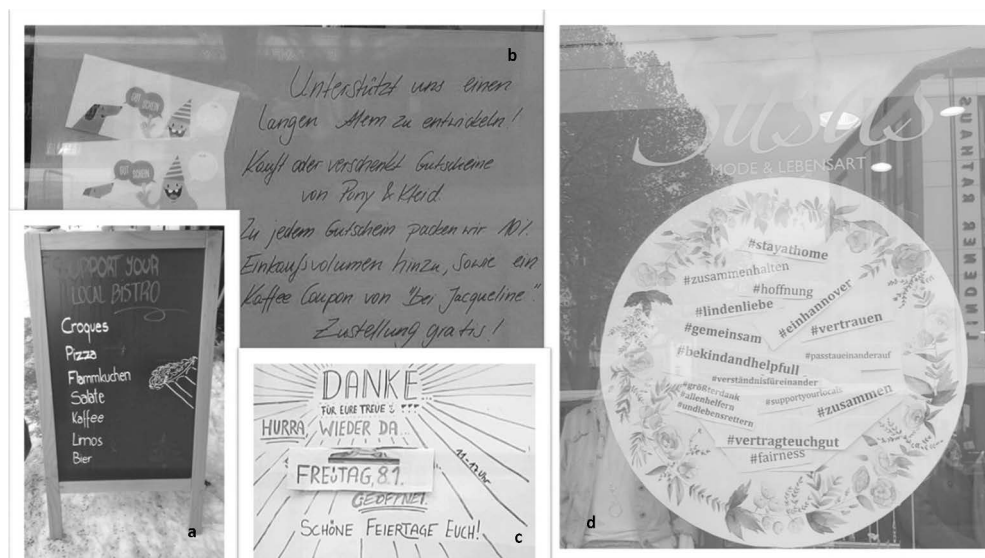 b
Unterstützt uns einen
langen Atem zu entwickeln!
Kauft oder verschenkt Gutscheine
von Pony & Kleid.
Zu jedem Gutschein packen wir 10%
Einkaufsvolumen hinzu, sowie ein
Kaffee Coupon von "bei Jacqueline".
Zustellung gratis!
GUT SCHEIN
GUT SCHEIN
SUPPORT YOUR
LOCAL BISTRO
Croques
Pizza
Flammkuchen
Salate
Kaffee
Limos
Bier
a
DANKE
FÜR EURE TREUE !!!
HURRA, WIEDER DA...
11-17 Uhr
FREITAG, 8.1.
GEÖFFNET.
SCHÖNE FEIERTAGE EUCH!
c
Susus
MODE & LEBENSART
LINDENER RATHAUS
#stayathome
#zusammenhalten
#hoffnung
#lindenliebe
#einhannover
#gemeinsam
#vertrauen
#bekindandhelpfull
#passtaueinanderauf
#verständnisfüreinander
#größterdank
#allenhelfern
#undlebensrettern
#supportyourlocals
#zusammen
#vertragteuchgut
#fairness
d